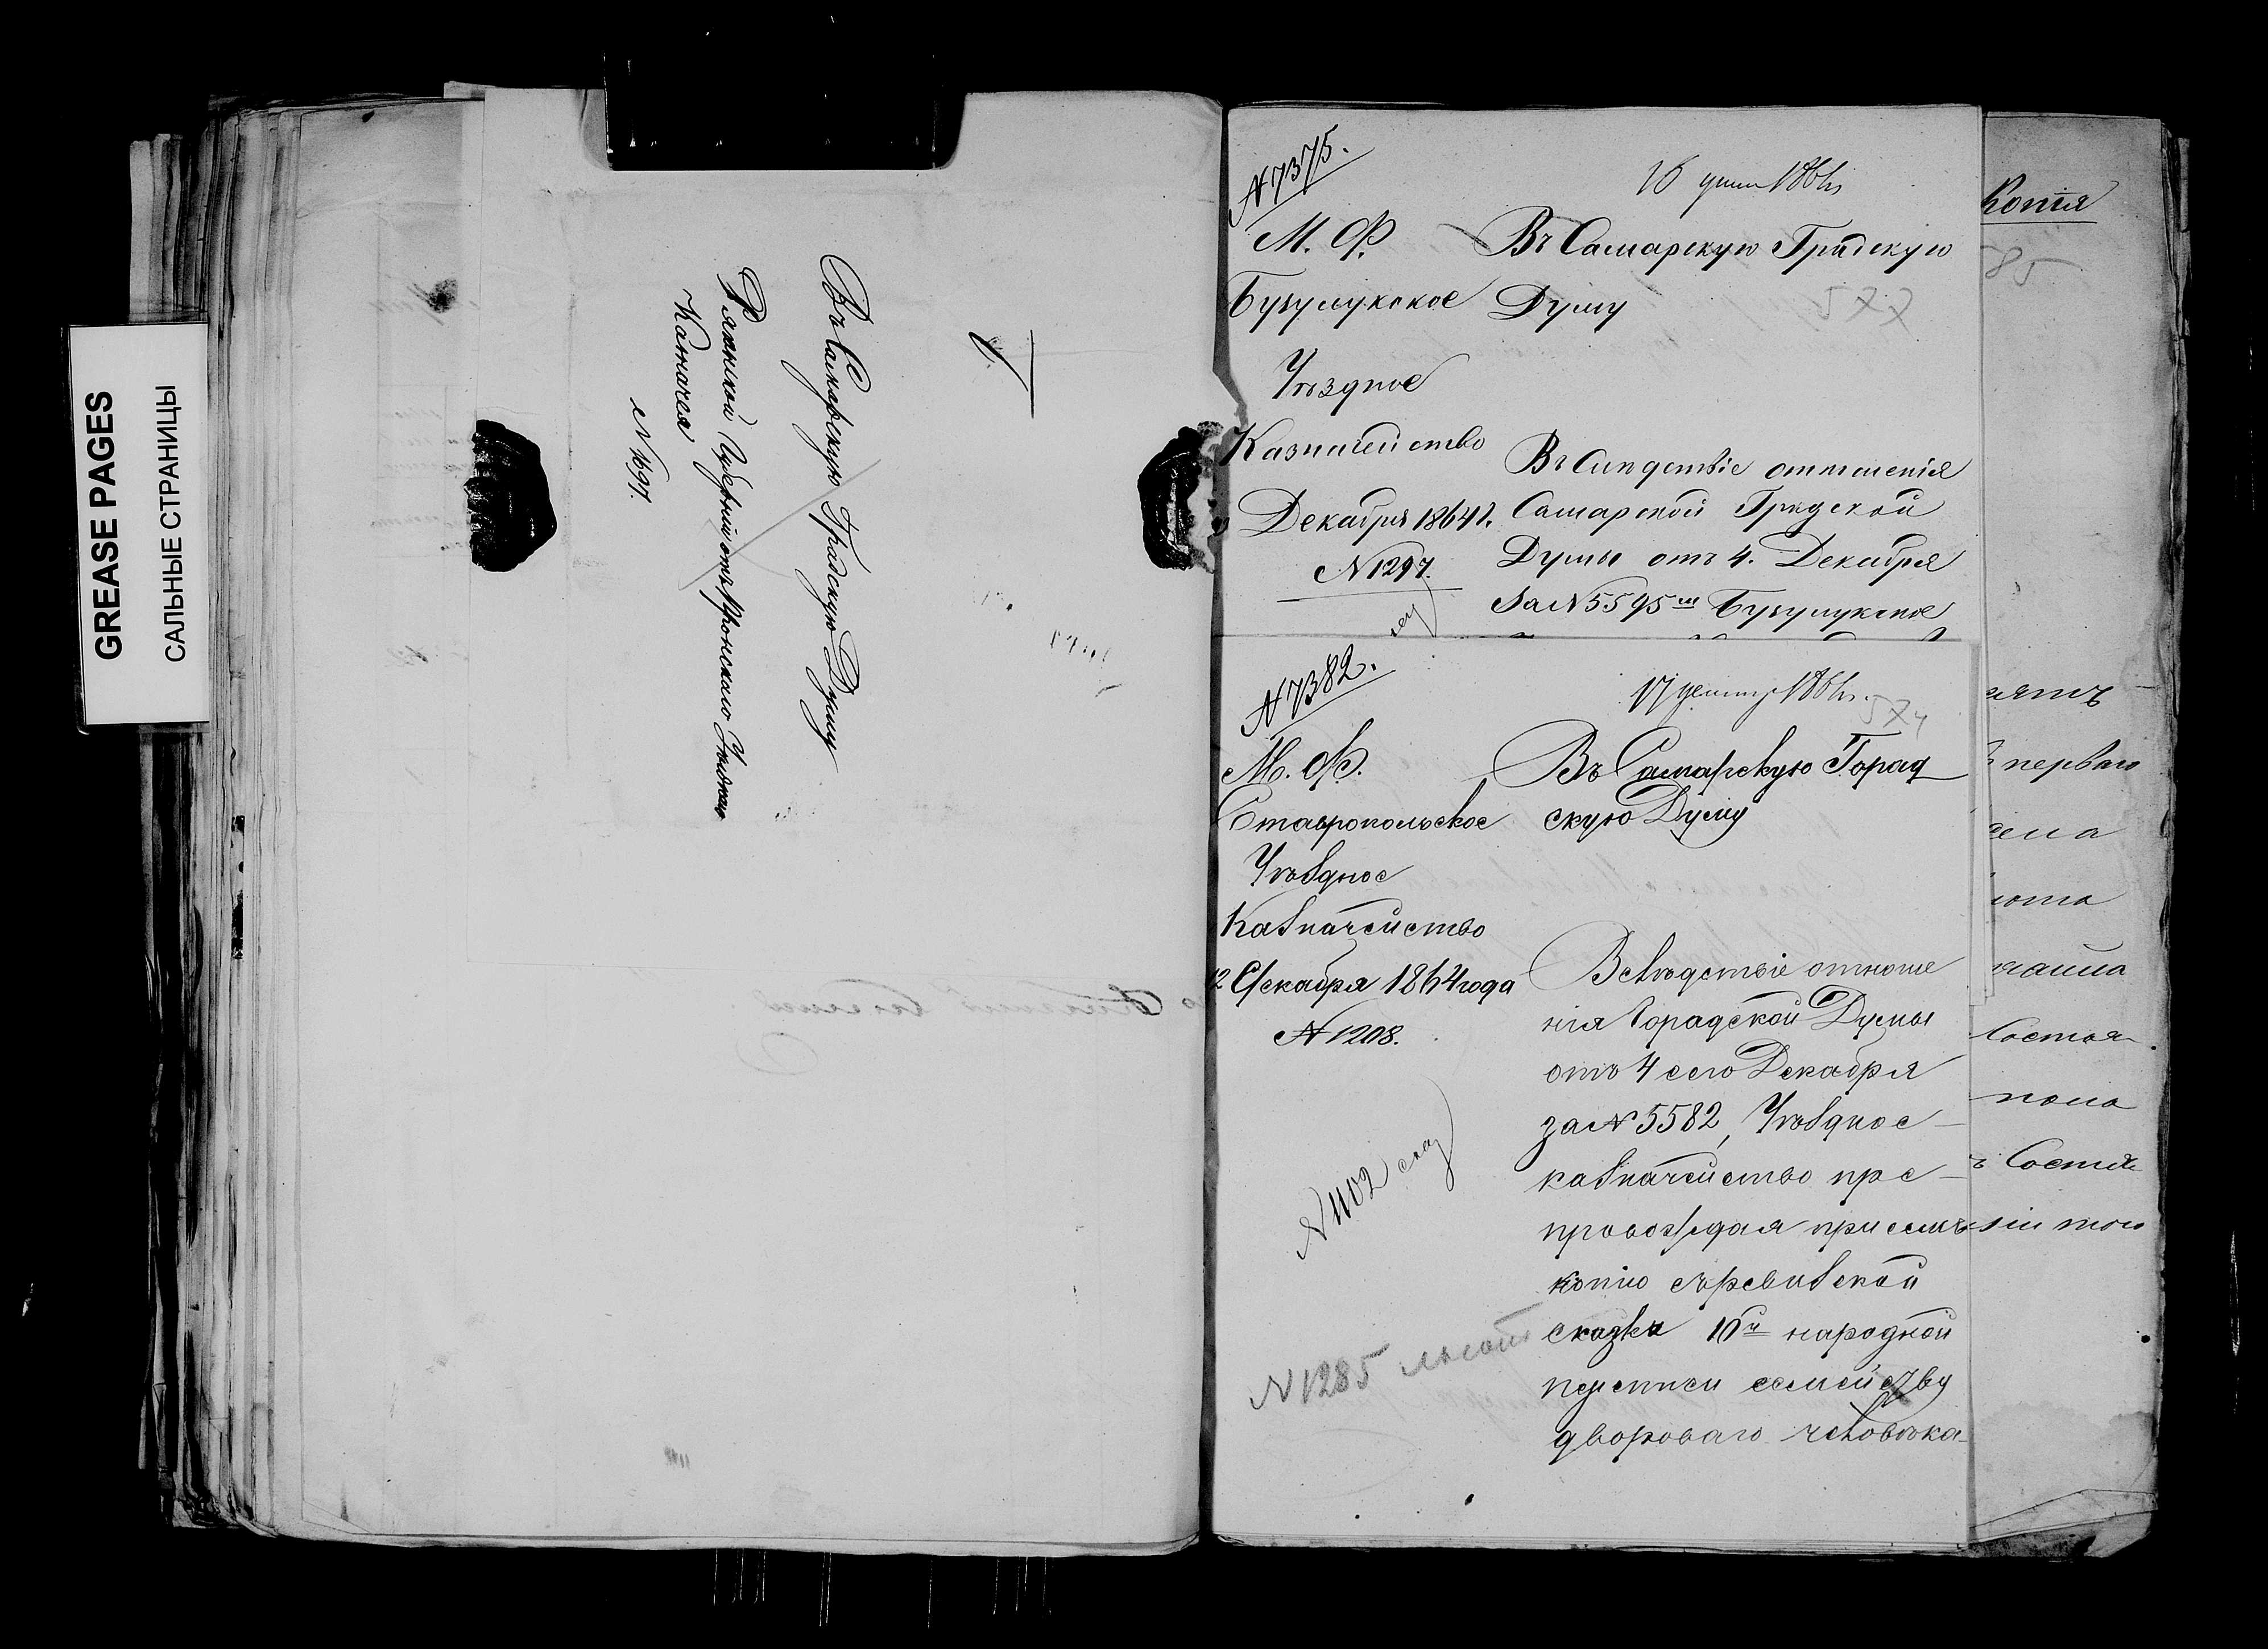 GREASE PAGES
САЛЬНЫЕ СТРАНИЦЫ
Въ Самарскую Градскую Думу
Рязанской Губерніи отъ Пронскаго Уѣзднаго
Казначея
№ 1697.
№ 7375.
16 1864
М. Ф.
Бузулукское
Уѣздное
Казначейство
Декабря 1864 г.
№ 1297.
Въ Самарскую Градскую
Думу
577
Въ Слѣдствіе отношенія
Самарской Градской
Думы отъ 4. Декабря
За № 5595 Бузулукское
№ 7382.
17 1864
574
М. Ф.
Ставропольское
Уѣздное
Казначейство
12 Декабря 1864 года
№ 1208.
№ 1102
№ 1285
Въ Самарскую Город
скую Думу
Вслѣдствіе отноше
нія Городской Думы
отъ 4 сего Декабря
за № 5582, Уѣздное
казначейство пре
провождая при семъ
копію съ ревизской
сказки 10й народной
переписи семейству
двороваго человѣка
Копія
85
перваго
Состоя
пола
Состоя
того